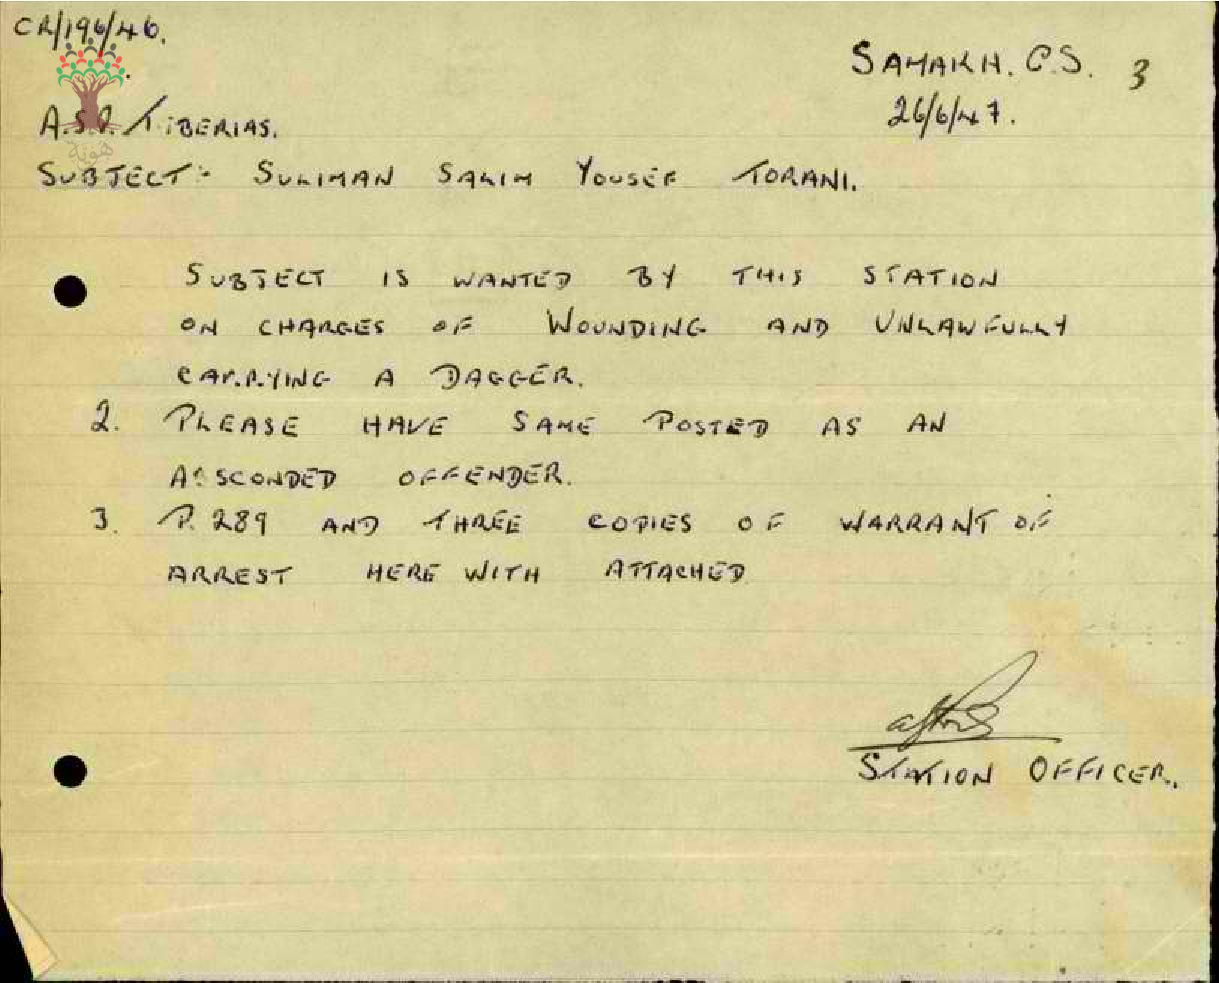 CR/196/46.
SAMAKH. P.S. 3
26/6/47.
A.S.P. TIBERIAS.
هوية
SUBJECT:- SULIMAN SALIM YOUSEF TORANI.
SUBJECT IS WANTED BY THIS STATION
ON CHARGES OF WOUNDING AND UNLAWFULLY
CARRYING A DAGGER.
2. PLEASE HAVE SAME POSTED AS AN
ABSCONDED OFFENDER.
3. P. 289 AND THREE COPIES OF WARRANT OF
ARREST HERE WITH ATTACHED
STATION OFFICER.